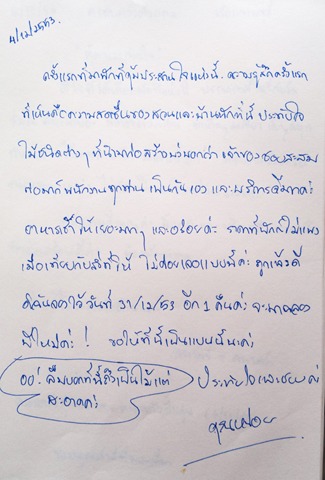 4/12/2553.
ครั้งแรกที่มาพักที่คุ้มประสานใจแห่งนี้. ความรู้สึกครั้งแรก
ที่เห็นคือความสดชื่นของสวนและบ้านพักที่นี่ ประทับใจ
ไม้ชนิดต่างๆ ที่นำมาก่อสร้างบ่งบอกว่า เจ้าของชอบสะสม
ต่อมาก็พนักงานทุกท่าน เป็นกันเอง และบริการดีมากค่ะ
อาหารเช้าให้เยอะมากๆ และอร่อยค่ะ ราคาที่พักก็ไม่แพง
เมื่อเทียบกับสิ่งที่ให้ ไม่ค่อยเจอแบบนี้ค่ะ ถูกแล้วดี
ดิฉันจองไว้วันที่ 31/12/53 อีก 1 คืนค่ะ จะมาฉลอง
ปีใหม่ค่ะ! ขอให้ที่นี่เป็นแบบนี้นะค่ะ
ประทับใจเลยค่ะ
อ๋อ! ลืมบอกที่นี่ถึงเป็นไม้แต่
สะอาดค่ะ